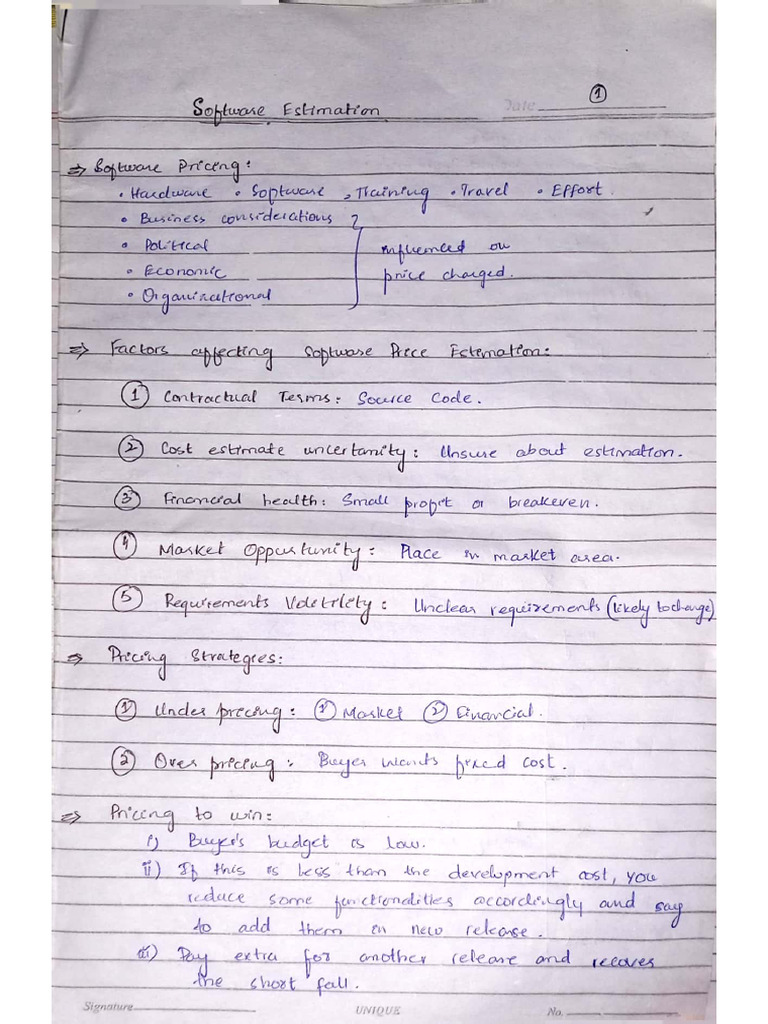 ①
Software Estimation Date
⇒ Software Pricing:
• Hardware • Software • Training • Travel • Effort.
• Business considerations
• Political influenced on
• Economic price charged.
• Organizational
⇒ Factors affecting Software Price Estimation:
① Contractual Terms: Source Code.
② Cost estimate uncertanity: Unsure about estimation.
③ Financial health: Small profit or breakeven.
④ Market Oppurtunity: Place in market area.
⑤ Requirements Volitility: Unclear requirements (likely to change)
⇒ Pricing Strategies:
① Under pricing: ① Market ② Financial.
② Over pricing: Buyer wants fixed cost.
⇒ Pricing to win:
i) Buyer's budget is low.
ii) If this is less than the development cost, you
reduce some functionalities accordingly and say
to add them in new release.
iii) Pay extra for another release and recover
the short fall.
Signature UNIQUE No.